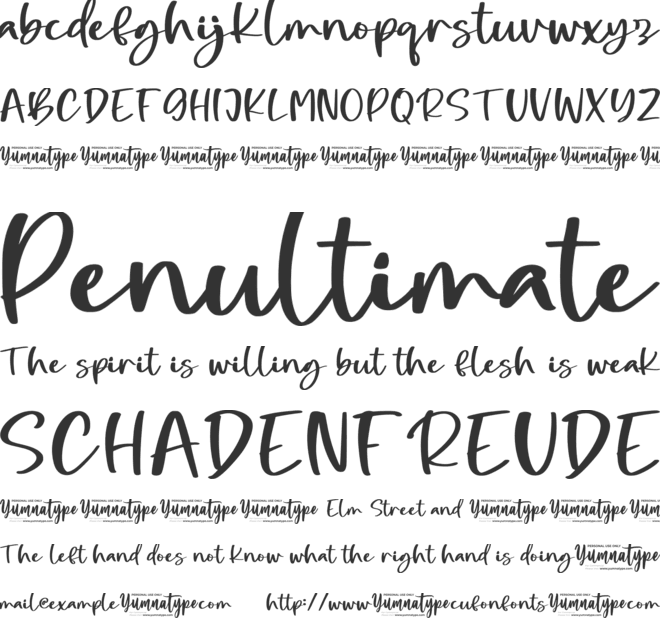 abcdefghijklmnopqrstuvwxyz
ABCDEFGHIJKLMNOPQRSTUVWXYZ
Yumnatype Yumnatype Yumnatype Yumnatype Yumnatype Yumnatype Yumnatype Yumnatype Yu
Penultimate
The spirit is willing but the flesh is weak
SCHADENFREUDE
Yumnatype Yumnatype Yumnatype Yumnatype Elm Street and Yumnatype Yumnatype Yu
The left hand does not know what the right hand is doing Yumnatype
mail@example Yumnatype com http://www Yumnatype cufonfonts Yumnatype com